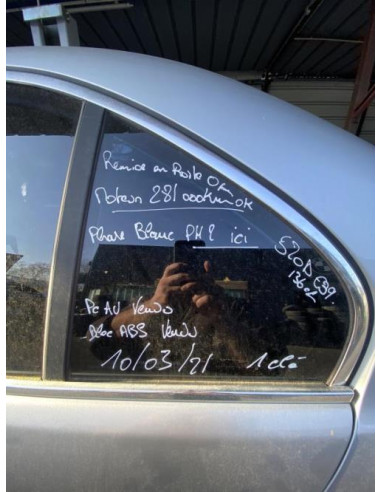 Remise en Route OK
Moteur 281 000Km OK
Phare Blanc PH2 ici
520D E39
136ch
Pc AV Vendu
Bloc ABS Vendu
10/03/21
1 clé